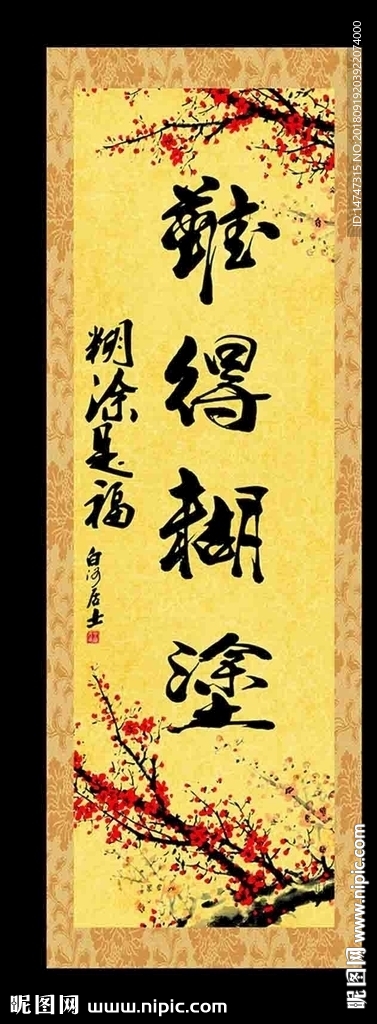 難得糊塗
糊涂是福
白河居士
ID:14747315 NO:20180919203922074000
昵图网 www.nipic.com
昵图网 www.nipic.com